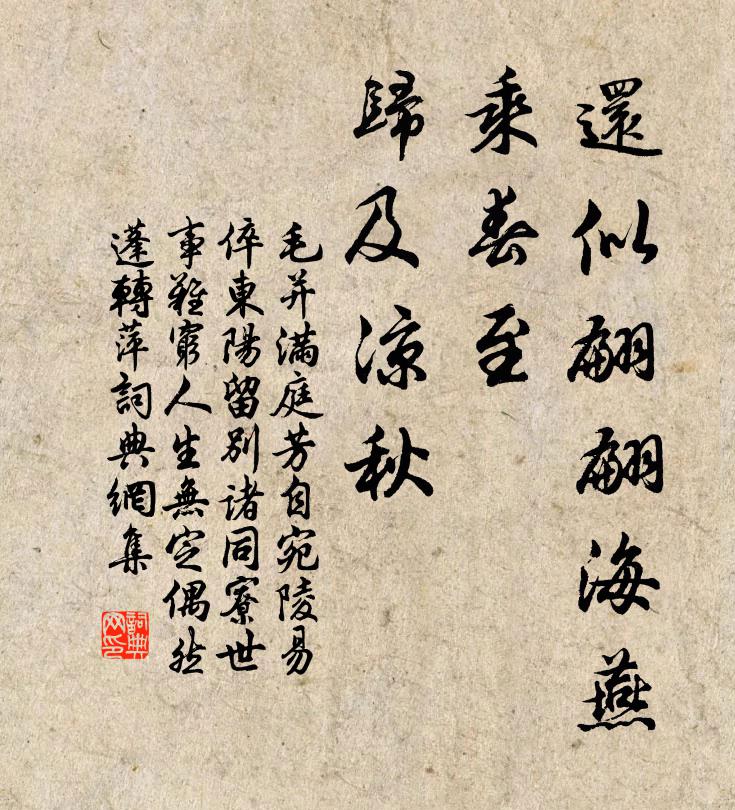 還似翩翩海燕
乘春至
歸及涼秋
毛并滿庭芳自宛陵易
倅東陽留別諸同寮世
事難窮人生無定偶然
蓬轉萍詞典網集
詞典網印